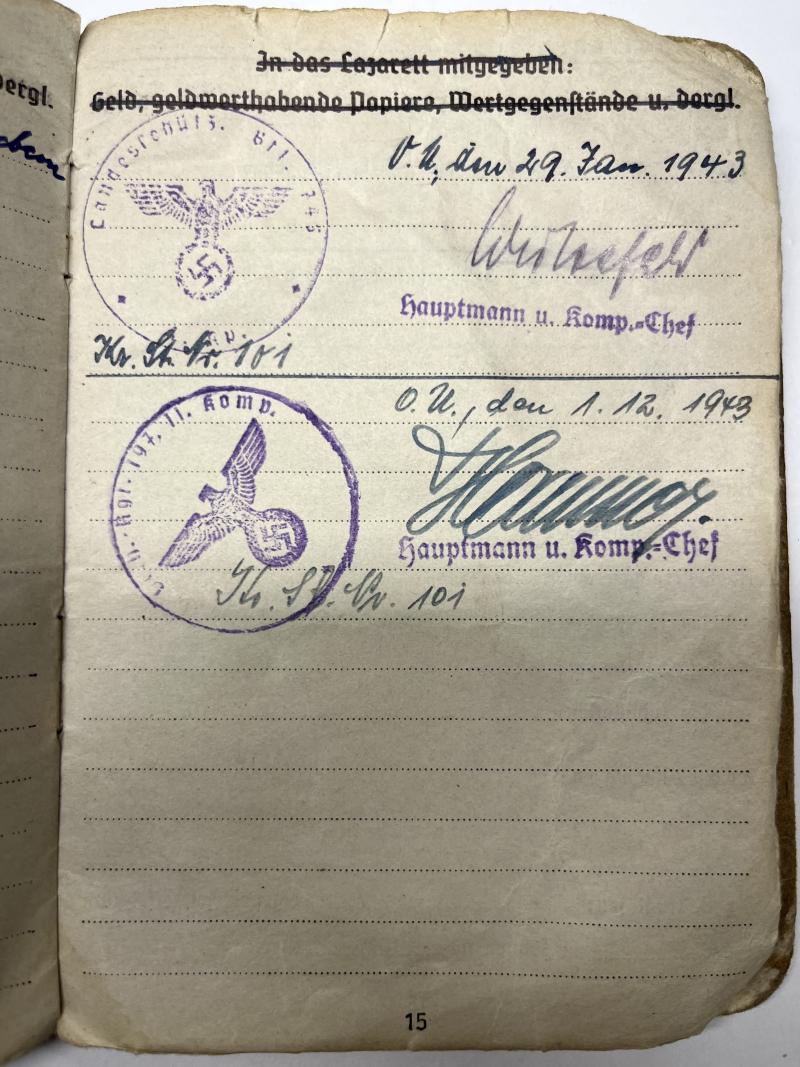 dergl.
In das Lazarett mitgegeben:
Geld, geldwerthabende Papiere, Wertgegenstände u. dergl.
Landesschütz. Btl.
O.U., den 29. Jan. 1943
Hauptmann u. Komp.-Chef
Kr. St. Nr. 101
Rgt. 197, 11. Komp.
O.U., den 1.12. 1943
Hauptmann u. Komp.-Chef
Kr. St. Nr. 101
15